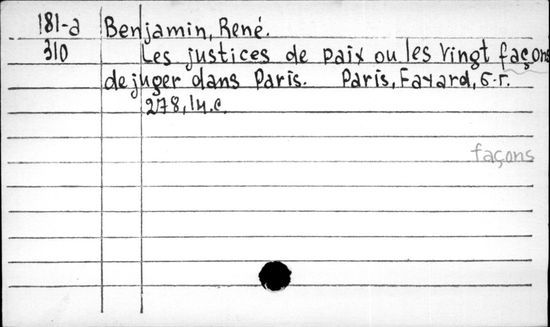 181-a Benjamin, René.
310 Les justices de paix ou les vingt façons
de juger dans Paris. Paris, Fayard, б.г.
278, 14 c.
façons